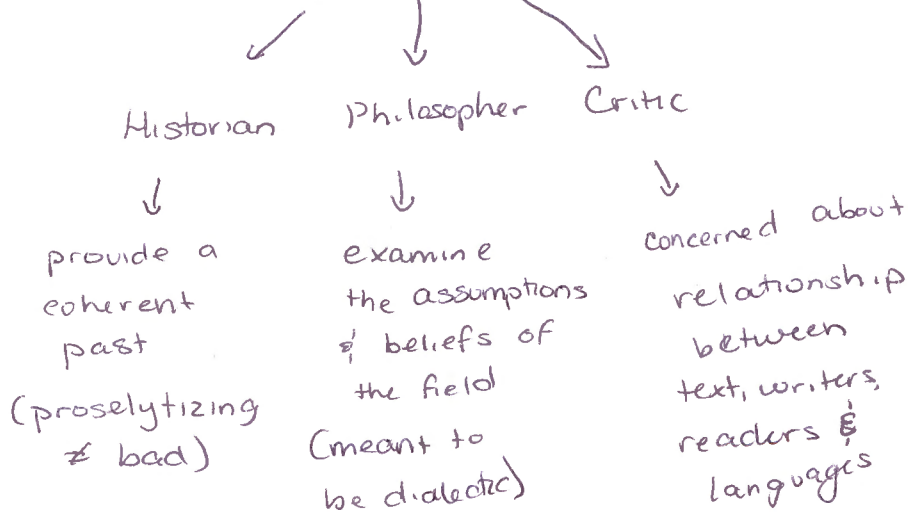 Historian
provide a
coherent
past
(proselytizing
≠ bad)
Philosopher
examine
the assumptions
& beliefs of
the field
(meant to
be dialectic)
Critic
concerned about
relationship
between
text, writers,
readers &
languages